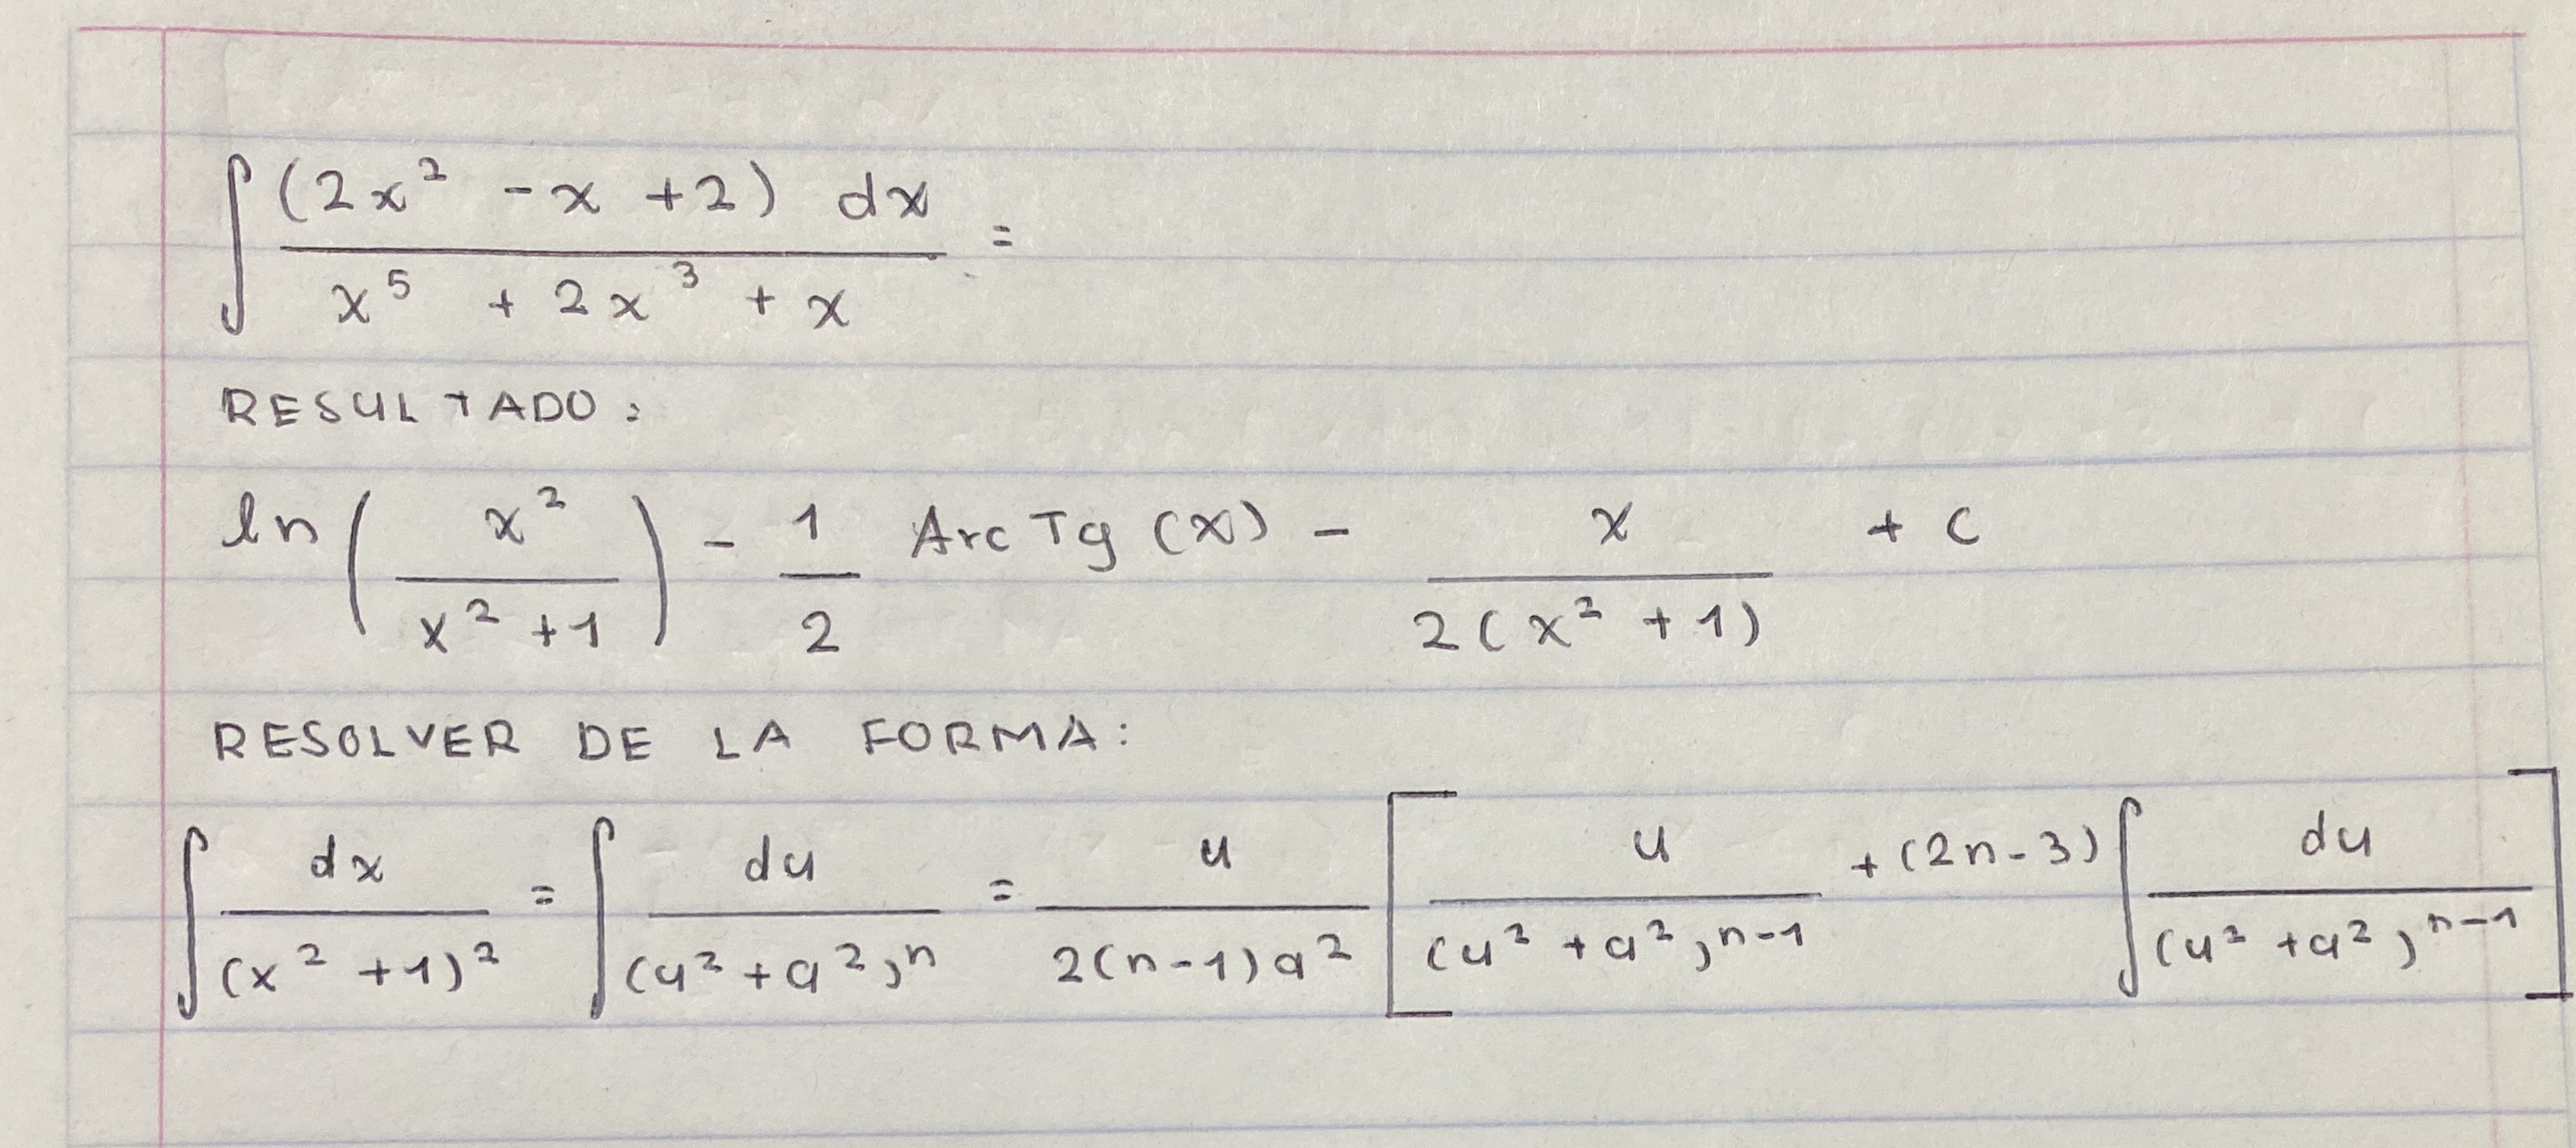 ∫ (2x² - x + 2) dx / x⁵ + 2x³ + x =
RESULTADO:
ln ( x² / x² + 1 ) - 1/2 Arc Tg (x) - x / 2(x² + 1) + c
RESOLVER DE LA FORMA:
∫ dx / (x² + 1)² = ∫ du / (u² + a²)ⁿ = u / 2(n-1)a² [ u / (u² + a²)ⁿ⁻¹ + (2n-3) ∫ du / (u² + a²)ⁿ⁻¹ ]